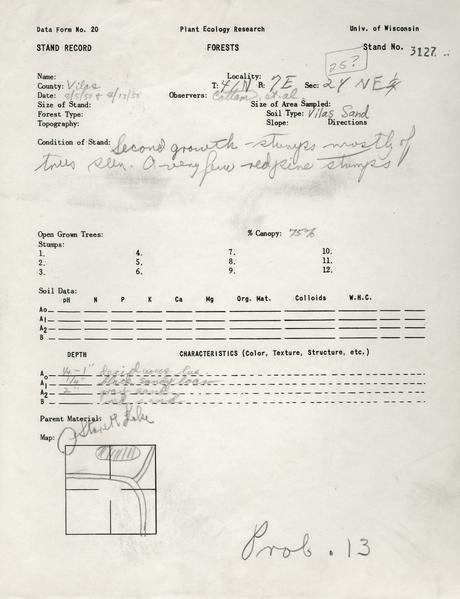 Data Form No. 20 Plant Ecology Research Univ. of Wisconsin
STAND RECORD FORESTS Stand No. 3127
25?
Name: Locality:
County: Vilas T: 41N R: 7E Sec: 24 NE 1/4
Date: Observers: Cottam, et al
Size of Stand: Size of Area Sampled:
Forest Type: Soil Type: Vilas Sand
Topography: Slope: Directions
Condition of Stand: Second growth - stumps mostly of
trees seen. A very few red pine stumps
Open Grown Trees: % Canopy: 75%
Stumps:
1. 4. 7. 10.
2. 5. 8. 11.
3. 6. 9. 12.
Soil Data:
pH N P K Ca Mg Org. Mat. Colloids W.H.C.
Ao
A1
A2
B
DEPTH CHARACTERISTICS (Color, Texture, Structure, etc.)
Ao deciduous
A1 1/4" black sandy loam
A2 2"
B
Parent Material:
Map: Lake
Prob. 13